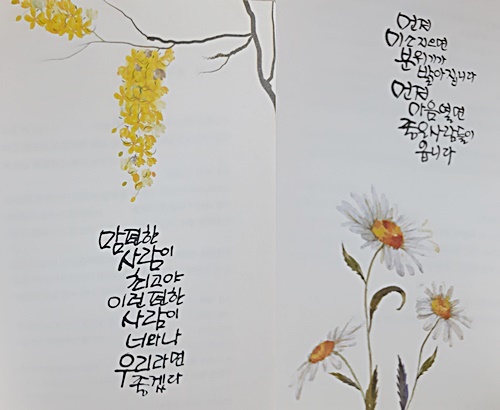 맘편한
사람이
최고야
이런편한
사람이
너와나
우리라면
좋겠다
먼저
미소지으면
분위기가
밝아집니다
먼저
마음열면
좋은사람들이
옵니다